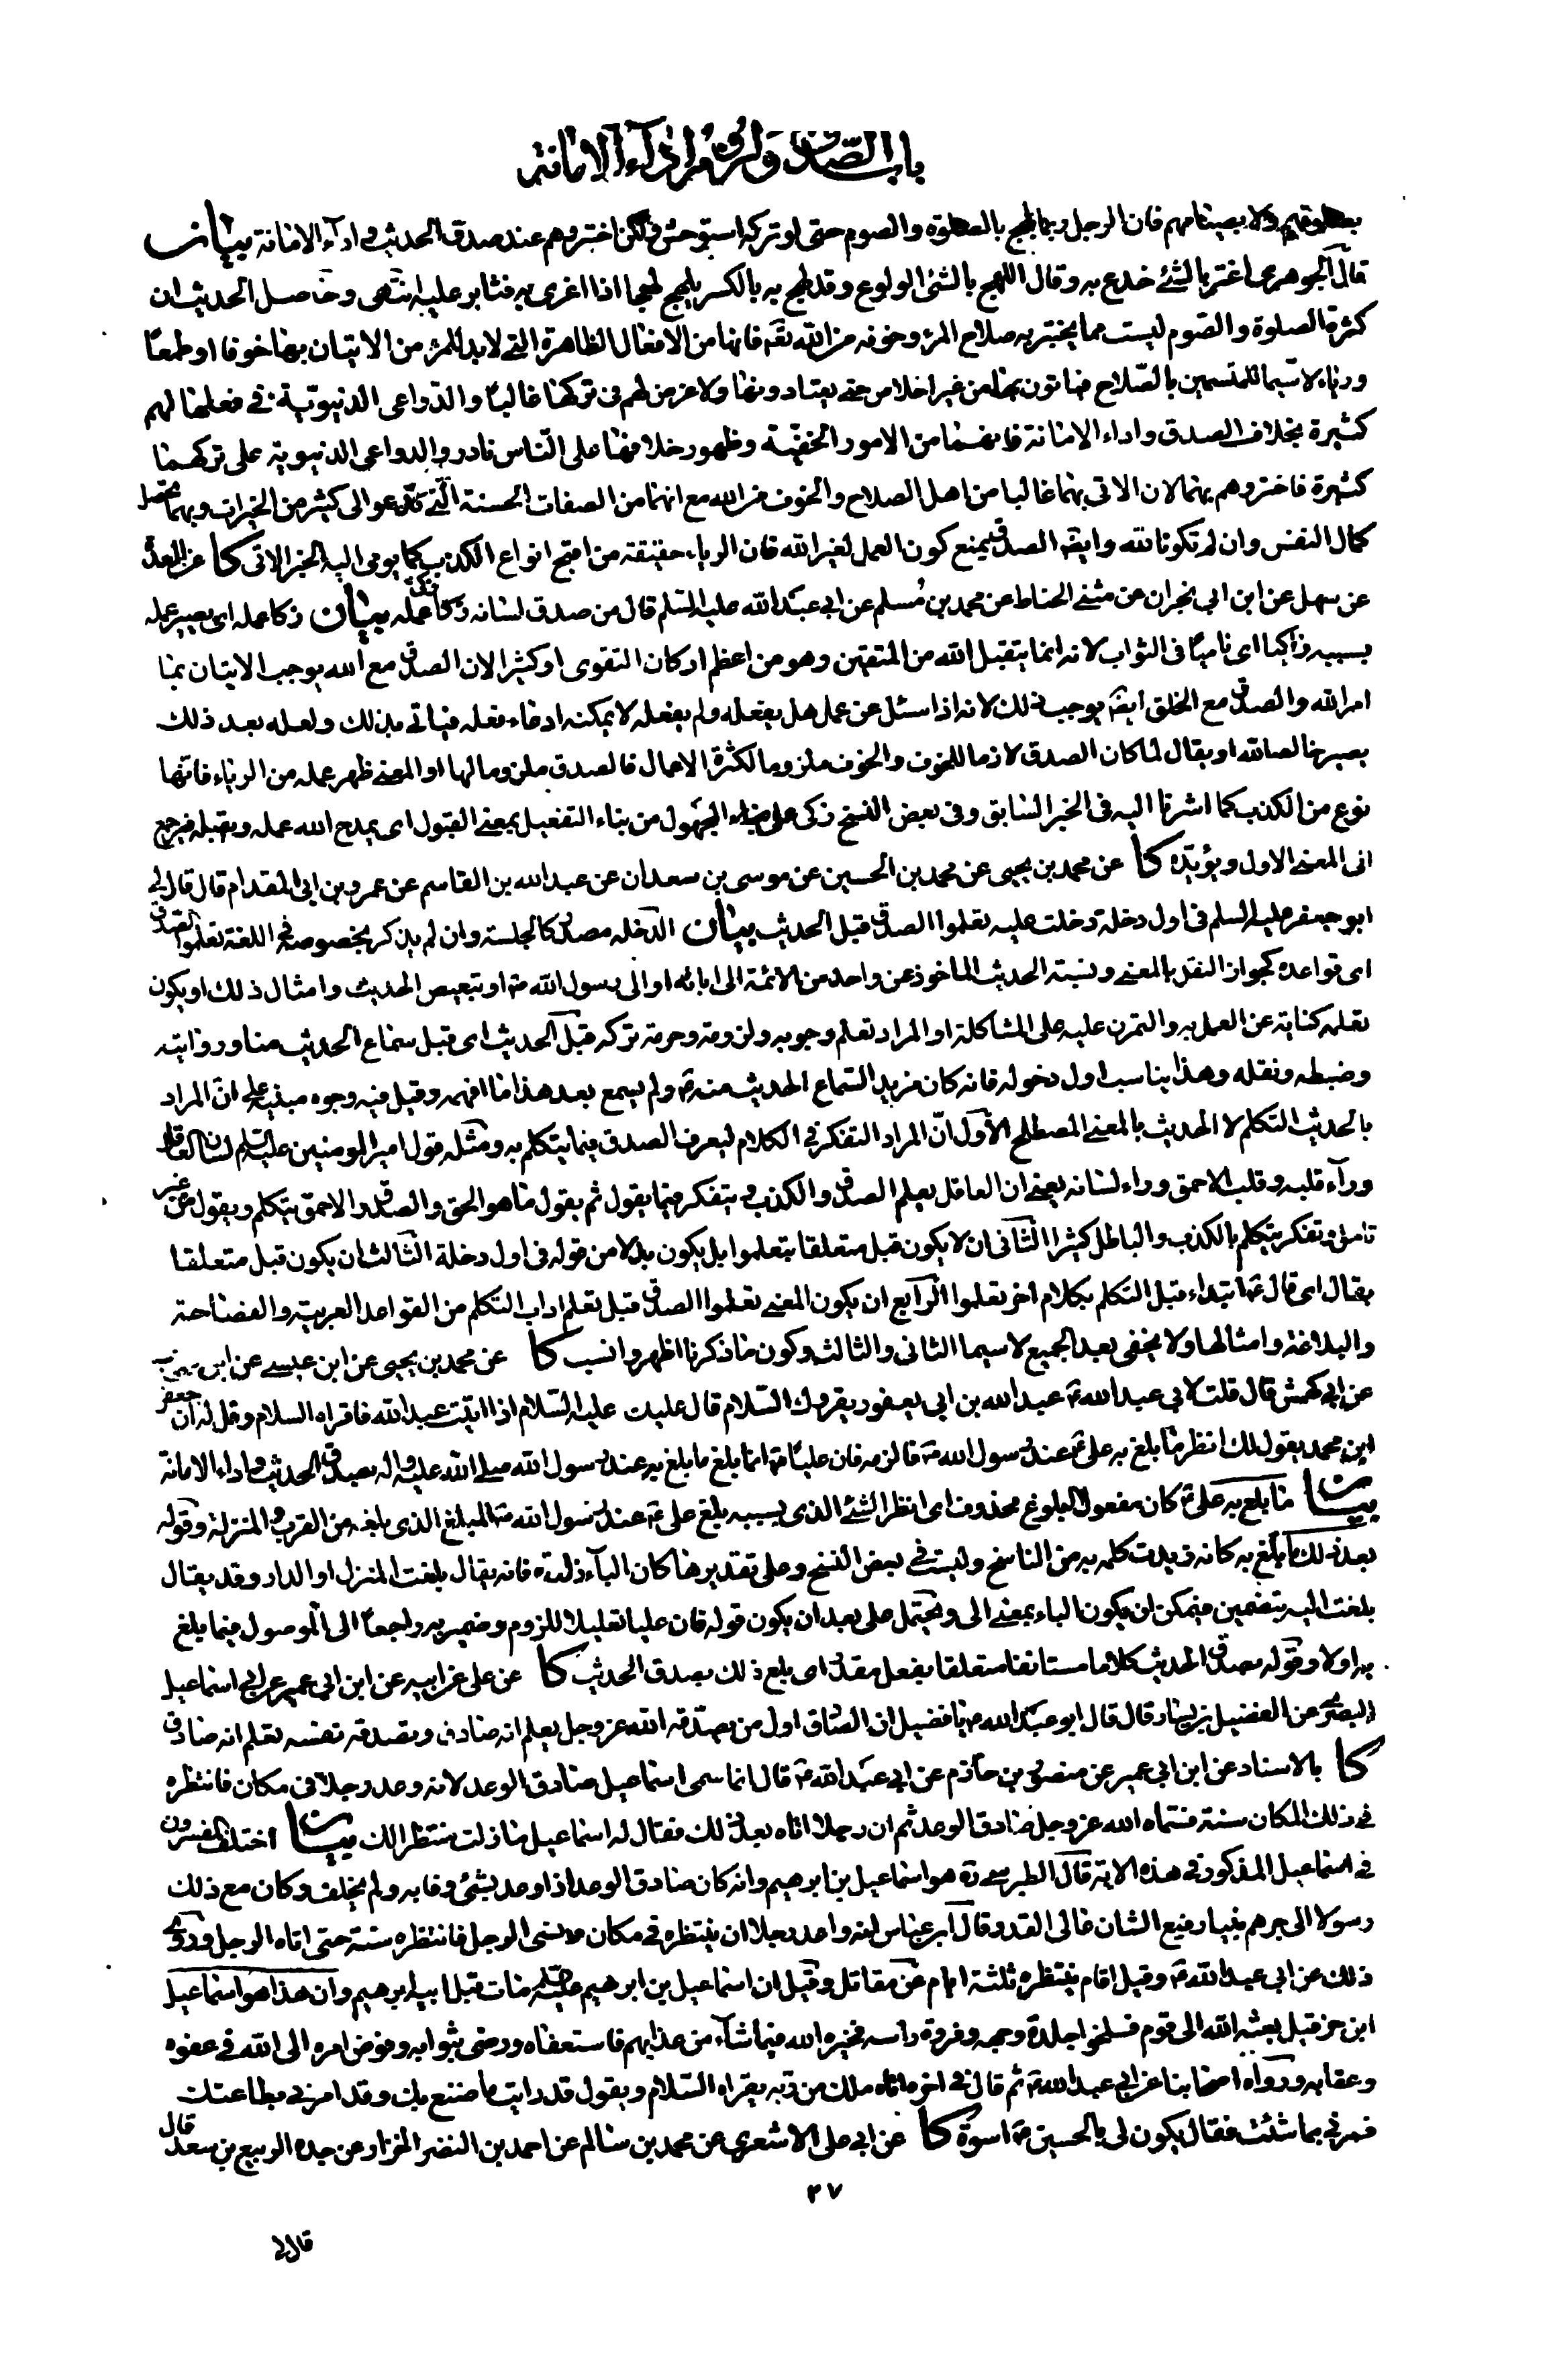 باب الصدق ولزوم اداء الامانة
بصلوتهم ولا بصيامهم فان الرجل ربما لهج بالصلوة والصوم حتى لو تركه استوحش ولكن اختبروهم عند صدق الحديث واداء الامانة بيان
قال الجوهرى اغتر بالشئ خدع به وقال اللهج بالشئ الولوع وقد لهج به بالكسر يلهج لهجا اذا اغرى به فثابر عليه انتهى وحاصل الحديث ان
كثرة الصلوة والصوم ليست مما يختبر به صلاح المرء وخوفه من الله تعه فانها من الافعال الظاهرة التى لابد للمرء من الاتيان بها خوفا او طمعا
ورياء لا سيما للمتسمين بالصلاح فياتون بها من غير اخلاص حتى يعتادونها ولا غرض لهم فى تركها غالبا والدواعى الدنيوية فى فعلها لهم
كثيرة بخلاف الصدق واداء الامانة فانهما من الامور الخفية وظهور خلافهما على الناس نادر والدواعى الدنيوية على تركهما
كثيرة فاختبروهم بهما لان الاتى بهما غالبا من اهل الصلاح والخوف من الله مع انهما من الصفات الحسنة التى تدعو الى كثير من الخيرات وبهما تحصل
كمال النفس وان لم تكونا لله وايضا الصدق يمنع كون العمل لغير الله فان الرياء حقيقة من اقبح انواع الكذب كما يومى اليه الخبر الاتى كا عن العدة
عن سهل عن ابن ابى نجران عن مثنى الحناط عن محمد بن مسلم عن ابى عبد الله عليه السلم قال من صدق لسانه زكا عمله بيان زكا عمله اى يصير عمله
بسببه زاكيا اى ناميا فى الثواب لانه انما يتقبل الله من المتقين وهو من اعظم اركان التقوى او كثيرا لان الصدق مع الله يوجب الاتيان بما
امر الله والصدق مع الخلق ايضا يوجب ذلك لانه اذا سئل عن عمل هل يفعله ولم يفعله لا يمكنه ادعاء فعله فياتى بذلك ولعله بعد ذلك
يصير خالصا لله او يقال لما كان الصدق لازما للخوف والخوف ملزوما لكثرة الاعمال فالصدق ملزوم لها او المعنى طهر عمله من الرياء فانها
نوع من الكذب كما اشرنا اليه فى الخبر السابق وفى بعض النسخ زكى على بناء المجهول من بناء التفعيل بمعنى القبول اى يمدح الله عمله ويقبله فيرجع
الى المعنى الاول ويؤيده كا عن محمد بن يحيى عن محمد بن الحسين عن موسى بن سعدان عن عبد الله بن القاسم عن عمرو بن ابى المقدام قال قال لى
ابو جعفر عليه السلم فى اول دخلة دخلت عليه تعلموا الصدق قبل الحديث بيان الدخلة مصدر كالجلسة وان لم يذكر بخصوصه فى اللغة تعلموا الصدق
اى قواعده كجواز النقل بالمعنى ونسبة الحديث الماخوذ عن واحد من الائمة الى ابائه او الى رسول الله ص او تبعيض الحديث وامثال ذلك او يكون
تعلمه كناية عن العمل به والتمرن عليه على المشاكلة او المراد تعلم وجوبه ولزومه وحرمة تركه قبل الحديث اى قبل سماع الحديث منا وروايته
وضبطه ونقله وهذا يناسب اول دخوله فانه كان يريد استماع الحديث منه ع ولم يسمع بعد هذا ما افهمه وقيل فيه وجوه مبنية على ان المراد
بالحديث التكلم لا الحديث بالمعنى المصطلح الاول ان المراد التفكر فى الكلام ليعرف الصدق فيما يتكلم به ومثله قول امير المومنين عليه السلم لسان العاقل
وراء قلبه وقلب الاحمق وراء لسانه يعنى ان العاقل يعلم الصدق والكذب ويتفكر فيما يقول ثم يقول ما هو الحق والصدق والاحمق يتكلم ويقول من غير
تامل وتفكر يتكلم بالكذب والباطل كثيرا الثانى ان لا يكون قبل متعلقا بتعلموا بل يكون بدلا من قوله فى اول دخلة الثالث ان يكون قبل متعلقا
بقال اى قال ع ابتداء قبل التكلم بكلام اخر تعلموا الرابع ان يكون المعنى تعلموا الصدق قبل تعلم اداب التكلم من القواعد العربية والفصاحة
والبلاغة وامثالها ولا يخفى بعد الجميع لا سيما الثانى والثالث وكون ما ذكرنا اظهر وانسب كا عن محمد بن يحيى عن ابن عيسى عن ابن محبوب
عن ابى كهمش قال قلت لابى عبد الله ع عبد الله بن ابى يعفور يقرءك السلام قال عليك وعليه السلام اذا اتيت عبد الله فاقراه السلام وقل له ان جعفر
ابن محمد يقول لك انظر ما بلغ به على ع عند رسول الله ص فالزمه فان عليا ع انما بلغ ما بلغ به عند رسول الله صلى الله عليه واله بصدق الحديث واداء الامانة
بيان ما بلغ به على ع كان مفعول البلوغ محذوف اى انظر الشئ الذى بسببه بلغ على ع عند رسول الله ص المبلغ الذى بلغه من القرب والمنزلة وقوله
بعد ذلك ما بلغ به كانه زيدت كلمة به من النساخ وليست فى بعض النسخ وعلى تقديرها كان الباء زائدة فانه يقال بلغت المنزل او الدار وقد يقال
بلغت اليه بتضمين فيمكن ان يكون الباء بمعنى الى ويحتمل على بعد ان يكون قوله فان عليا تعليلا للزوم وضمير به راجعا الى الموصول فيما بلغ
به اولا وقوله بصدق الحديث كلاما مستانفا متعلقا بفعل مقدر اى بلغ ذلك بصدق الحديث كا عن على عن ابيه عن ابن ابى عمير عن ابى اسماعيل
البصرى عن الفضيل بن يسار قال قال ابو عبد الله ع يا فضيل ان الصادق اول من يصدقه الله عز وجل يعلم انه صادق وتصدقه نفسه تعلم انه صادق
كا بالاسناد عن ابن ابى عمير عن منصور بن حازم عن ابى عبد الله ع قال انما سمى اسماعيل صادق الوعد لانه وعد رجلا فى مكان فانتظره
فى ذلك المكان سنة فسماه الله عز وجل صادق الوعد ثم ان رجلا اتاه بعد ذلك فقال له اسماعيل ما زلت منتظرا لك بيان اختلف المفسرون
فى اسماعيل المذكور فى هذه الاية قال الطبرسى ره هو اسماعيل بن ابرهيم وانه كان صادق الوعد اذا وعد بشئ وفا به ولم يخلف وكان مع ذلك
رسولا الى جرهم نبيا رفيع الشان عالى القدر وقال ابن عباس انه واعد رجلا ان ينتظره فى مكان ونسى الرجل فانتظره سنة حتى اتاه الرجل وروى
ذلك عن ابى عبد الله ع وقيل اقام ينتظره ثلثة ايام عن مقاتل وقيل ان اسماعيل بن ابرهيم مات قبل ابيه ابرهيم وان هذا هو اسماعيل
ابن حزقيل بعثه الله الى قوم فسلخوا جلدة وجهه وفروة راسه فخيره الله فيما شاء من عذابهم فاستعفاه ورضى بثوابه وفوض امره الى الله فى عفوه
وعقابه ورواه اصحابنا عن ابى عبد الله ع ثم قال فى اخره اتاه ملك من ربه يقراه السلام ويقول قد رايت ما صنع بك وقد امرنى بطاعتك
فمرنى بما شئت فقال يكون لى بالحسين ع اسوة كا عن ابى على الاشعرى عن محمد بن سالم عن احمد بن النضر الخزاز عن جده الربيع بن سعد قال
٣٧
قال لى